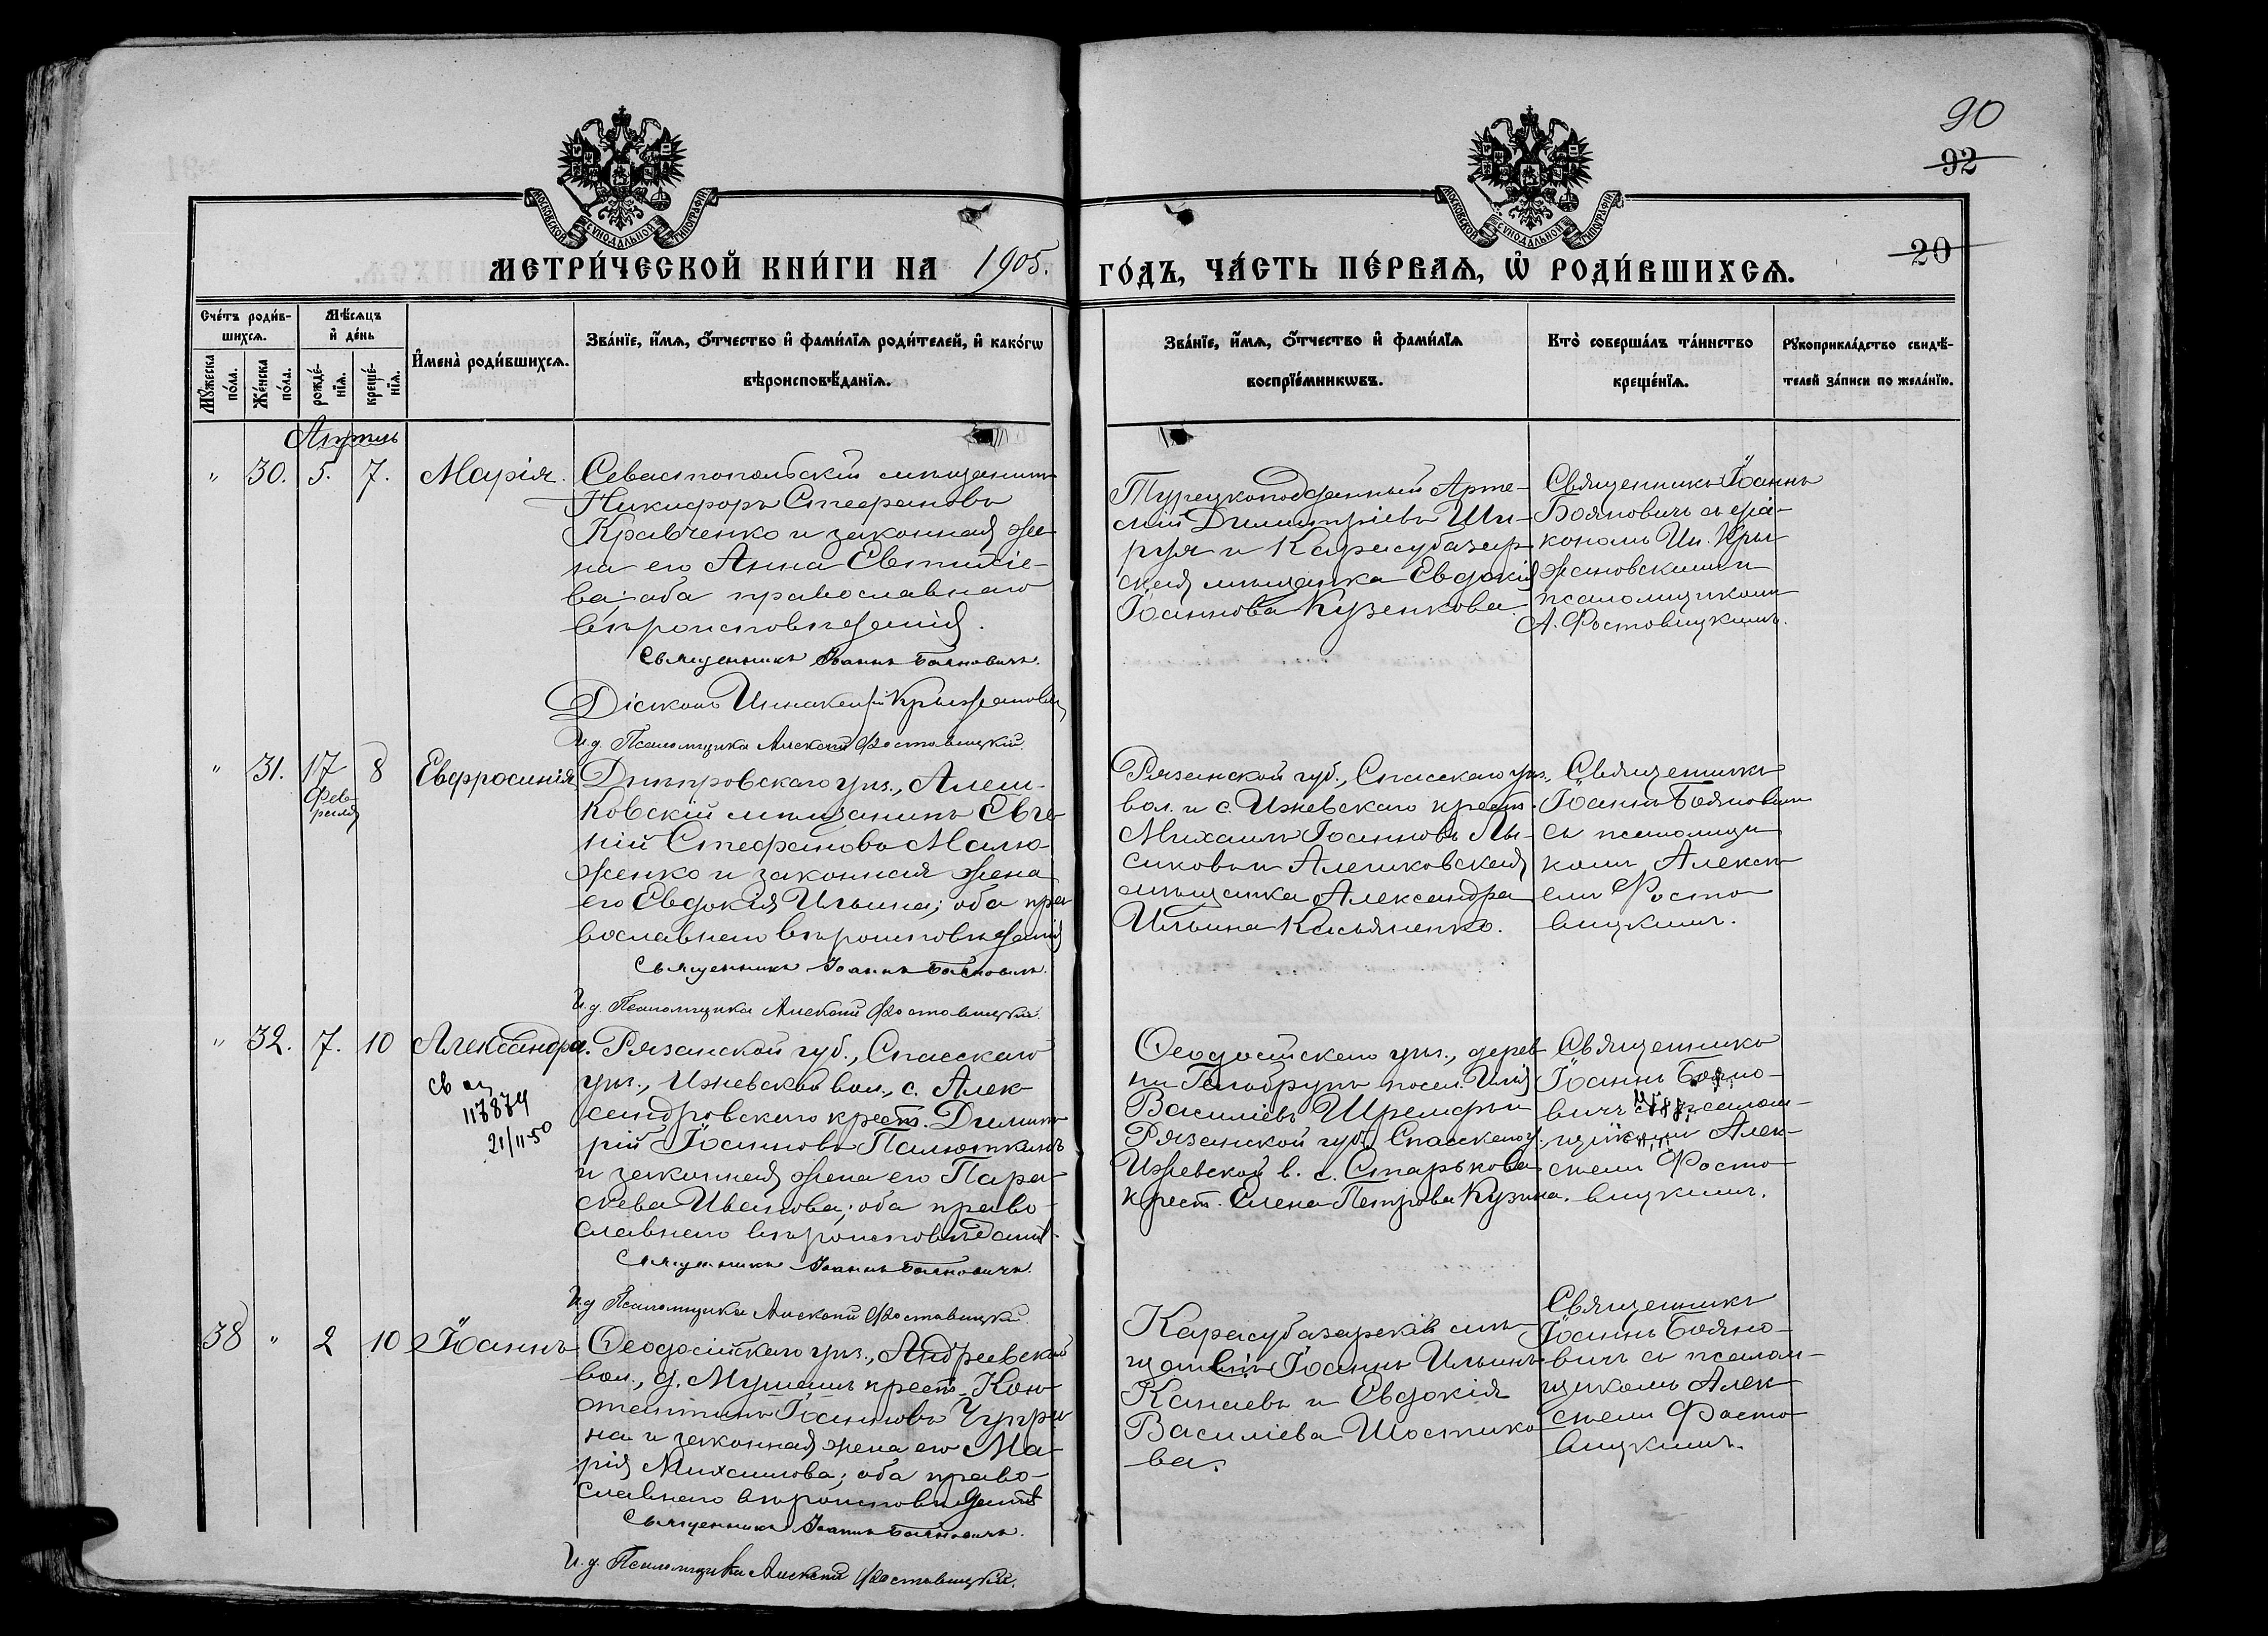 90
92
20
МОСКОВСКОЙ СѴНОДАЛЬНОЙ ТИПОГРАФІИ
МОСКОВСКОЙ СѴНОДАЛЬНОЙ ТИПОГРАФІИ
МЕТРИ́ЧЕСКОЙ КНИ́ГИ НА 1905.
ГО́ДЪ, ЧА́СТЬ ПЕ́РВАѦ, Ѽ РОДИ́ВШИХСѦ.
Сче́тъ роди́в-
шихсѧ.
Мꙋ́жеска по́ла.
Же́нска по́ла.
Мѣ́сѧцъ
и҆ де́нь
рожде́-
нїѧ.
креще́-
нїѧ.
И҆мена̀ роди́вшихсѧ.
Зва́нїе, и҆́мѧ, ѻ҆́тчество и҆ фами́лїѧ роди́телей, и҆ како́гѡ
вѣроисповѣ́данїѧ.
Зва́нїе, и҆́мѧ, ѻ҆́тчество и҆ фами́лїѧ
воспрїе́мникѡвъ.
Кто̀ соверша́лъ та́инство
креще́нїѧ.
Рꙋкоприкла́дство свидѣ́-
телей за́писи по жела́нїю.
Апрель
" 30. 5. 7. Марія.
Севастопольскій мѣщанинъ
Никифоръ Стефановъ
Кравченко и законная же-
на его Анна Евтихіе-
ва; оба православнаго
вѣроисповѣданія.
Священникъ Іоаннъ Бояновичъ.
Діаконъ Иннокентій Крыжановскій
И.д. Псаломщика Алексѣй Фостовицкій.
Турецкоподданный Арте-
мій Димитріевъ Ши-
руя и Карасубазар-
ская мѣщанка Евдокія
Іоаннова Кузенкова.
Священникъ Іоаннъ
Бояновичъ съ діа-
кономъ Ин. Кры-
жановскимъ и
псаломщикомъ
А. Фостовицкимъ.
" 31. 17 Февраля 8 Евфросинія
Днѣпровскаго уѣз., Алеш-
ковскій мѣщанинъ Евге-
ній Стефановъ Малю-
женко и законная жена
его Евдокія Ильина; оба пра-
вославнаго вѣроисповѣданія
Священникъ Іоаннъ Бояновичъ.
И.д. Псаломщика Алексѣй Фостовицкій.
Рязанской губ., Спасскаго уѣз.,
вол. и с. Ижевскаго крест.
Михаилъ Іоанновъ Лы-
сиковъ и Алешковская
мѣщанка Александра
Ильина Касьяненко.
Священникъ
Іоаннъ Бояновичъ
съ псаломщи-
комъ Алексѣ-
емъ Фосто-
вицкимъ.
" 32. 7. 10 Александра.
св
117874
21/11-50
Рязанской губ., Спасскаго
уѣз., Ижевской вол., с. Алек-
сандровскаго крест. Димит-
рій Іоанновъ Палюткинъ
и законная жена его Пара-
скева Иванова; оба право-
славнаго вѣроисповѣданія.
Священникъ Іоаннъ Бояновичъ.
И.д. Псаломщика Алексѣй Фостовицкій.
Ѳеодосійскаго уѣз., дерев-
ни посел. Илія
Василіевъ и
Рязанской губ., Спасскаго у.
Ижевской в. с. Старькова
крест. Елена Петрова Кузина.
Священникъ
Іоаннъ Бояно-
вичъ съ псалом-
щикомъ Алек-
сѣемъ Фосто-
вицкимъ.
38 " 2 10 Іоаннъ
Ѳеодосійскаго уѣз., Андреевской
вол., д. крест. Кон-
стантинъ Іоанновъ Чупри-
на и законная жена его Ма-
рія Михаилова; оба право-
славнаго вѣроисповѣданія
Священникъ Іоаннъ Бояновичъ.
И.д. Псаломщика Алексѣй Фостовицкій.
Карасубазарскій мѣ-
щанинъ Іоаннъ Ильинъ
Канаевъ и Евдокія
Василіева Шостико-
ва.
Священникъ
Іоаннъ Бояно-
вичъ съ псалом-
щикомъ Алек-
сѣемъ Фосто-
вицкимъ.